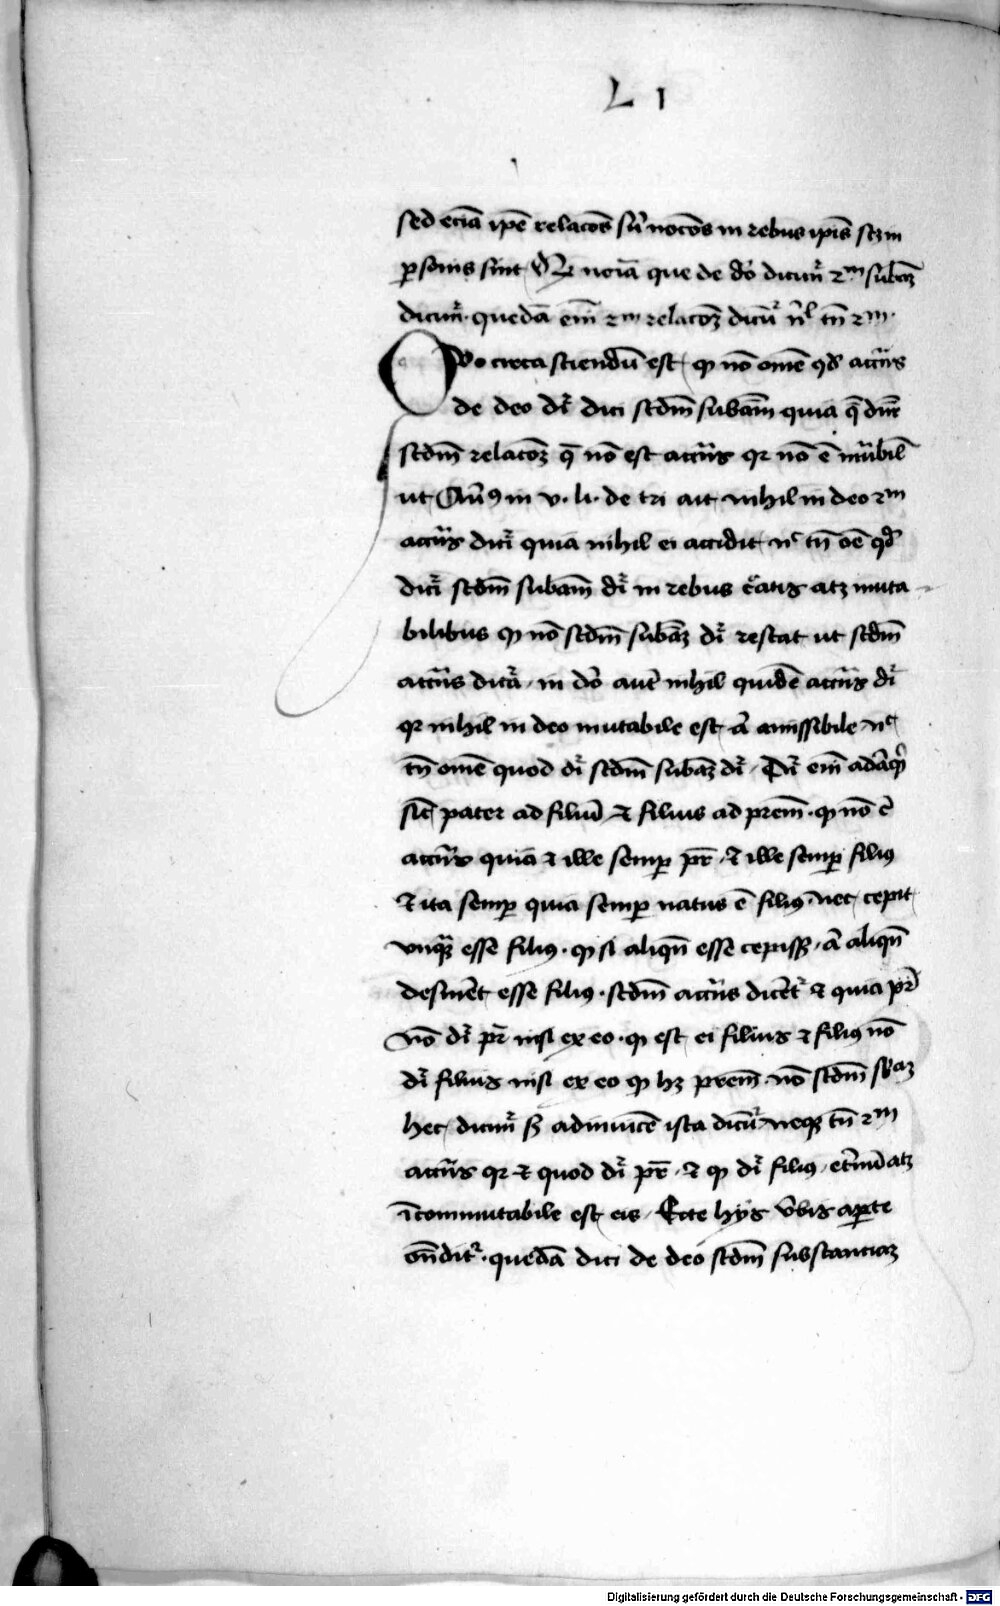 L I
sed eciã ipẽ relacões sũt nocões in rebus ipĩs sczm
ꝑsonis sint Qꝫ noĩa que de dõ dicunt᷑ ẜm subãꝫ
dicunt᷑· quedã em̃ ẜm relacõꝫ dicũt᷑ nͥl tñ ẜm
Quo circa sciendũ est ꝙ nõ om̃e qd̃ accñs
de deo dr̃ dici scdm̃ subãm quia q̃
scdm̃ relacõꝫ q̃ nõ est accñs qꝛ nõ ẽ mũbil̃
ut Auͥꝯ in v· li· de tri ait nihil in deo ẜm
accñs dicit᷑ quia nihil ei accidit nͨ tñ oẽ qd̃
dicit᷑ scdm̃ subãm dr̃ in rebus cͥatis atꝫ muta
bilibus ꝙ nõ scdm̃ subãꝫ dr̃ restat ut scdm̃
accñs dicat᷑ / in dõ autẽ nihil quidẽ accñs dr̃
qꝛ nihil in deo mutabile est ã amissibile nͨ
tñ om̃e quod dr̃ scdm̃ subãꝫ dr̃ / Dr̃ em̃ ad aͥqͥd
sic̃ pater ad filiũ ⁊ filius ad pr̃em · ꝙ nõ ẽ
accñs quia ⁊ ille semꝑ pr̃ · ⁊ ille semꝑ filius
⁊ ita semꝑ quia semꝑ natus ẽ filiꝯ nec cepit
vnqͣꝫ esse filiꝯ · ꝙ si aliqñ esse cepissꝫ / ã aliqñ
desinẽt esse filiꝯ · scdm̃ accñs dicẽt᷑ ⁊ quia pr̃
nõ dr̃ pr̃ nisi ex eo · ꝙ est ei filius ⁊ filiꝯ nõ
dr̃ filius nisi ex eo ꝙ hꝫ pr̃em nõ scdm̃ sbãꝫ
hec dicunt᷑ sꝫ adinuicẽ ista dicũt᷑ neqꝫ tñ ẜm
accñs qꝛ ⁊ quod dr̃ pr̃ / ⁊ ꝙ dr̃ filiꝯ / et̃nũ atꝫ
ĩcommutabile est eis / Ecce hijs v̾bis aꝑte
oñdit᷑ · quedã dici de deo scdm̃ substanciaꝫ
Digitalisierung gefördert durch die Deutsche Forschungsgemeinschaft - DFG